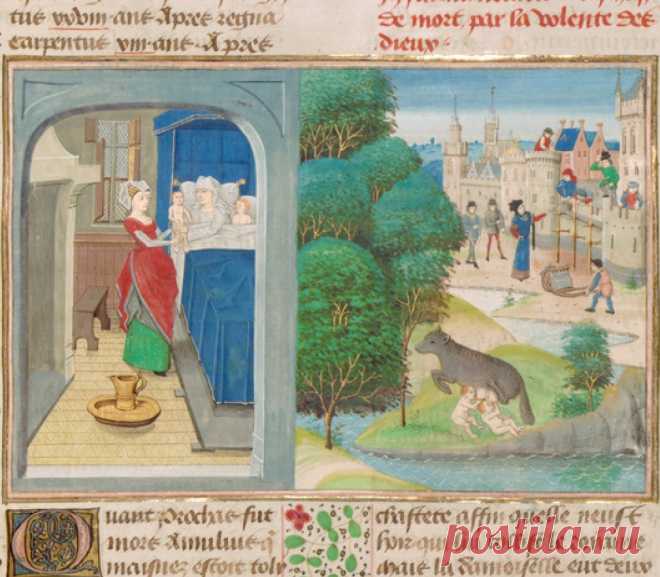 tus ans. Apres regna
Carpentus viii. ans. Apres
de mort par la volente des
dieux.
Quant Prochas fut
mort Amulius q̃
maisnez estoit toly
chastete affin quelle neust
hoir
la damoiselle eut deux
postila.ru